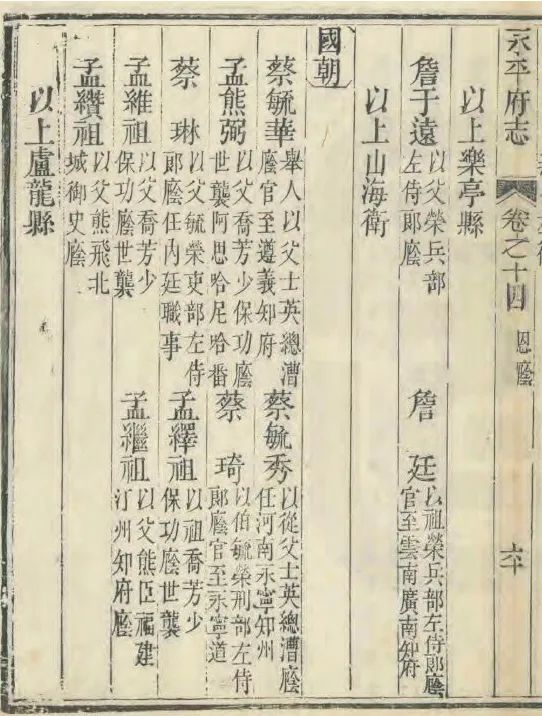 永平府志
卷之十四 恩廕
六十
以上樂亭縣
詹于遠 以父榮兵部左侍郎廕
詹廷 以祖榮兵部左侍郎廕官至雲南廣南知府
以上山海衛
國朝
蔡毓華 舉人以父士英總漕廕官至遵義知府
蔡毓秀 以從父士英總漕廕任河南永寧知州
孟熊弼 以父喬芳少保功廕世襲阿思哈尼哈番
蔡琦 以伯毓榮刑部左侍郎廕官至永寧道
蔡琳 以父毓榮吏部左侍郎廕任內廷職事
孟繹祖 以祖喬芳少保功廕世襲
孟維祖 以父喬芳少保功廕世襲
孟繼祖 以父熊臣福建汀州知府廕
孟纘祖 以父熊飛北城御史廕
以上盧龍縣